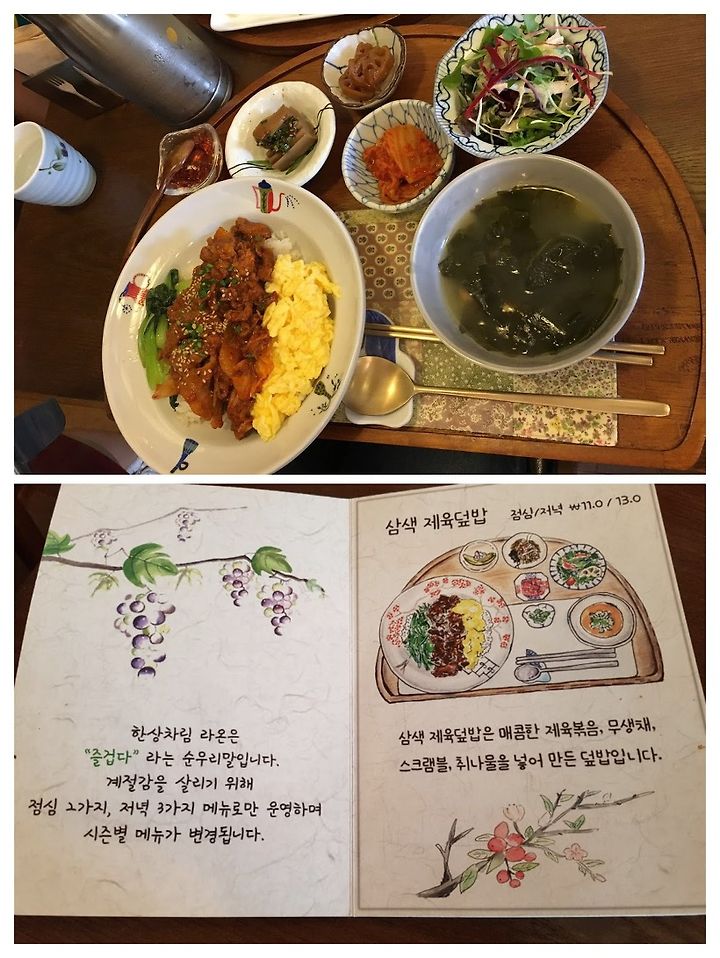 한상차림 라온은
"즐겁다" 라는 순우리말입니다.
계절감을 살리기 위해
점심 2가지, 저녁 3가지 메뉴로만 운영하며
시즌별 메뉴가 변경됩니다.
삼색 제육덮밥 점심/저녁 ₩11.0 / 13.0
삼색 제육덮밥은 매콤한 제육볶음, 무생채,
스크램블, 취나물을 넣어 만든 덮밥입니다.